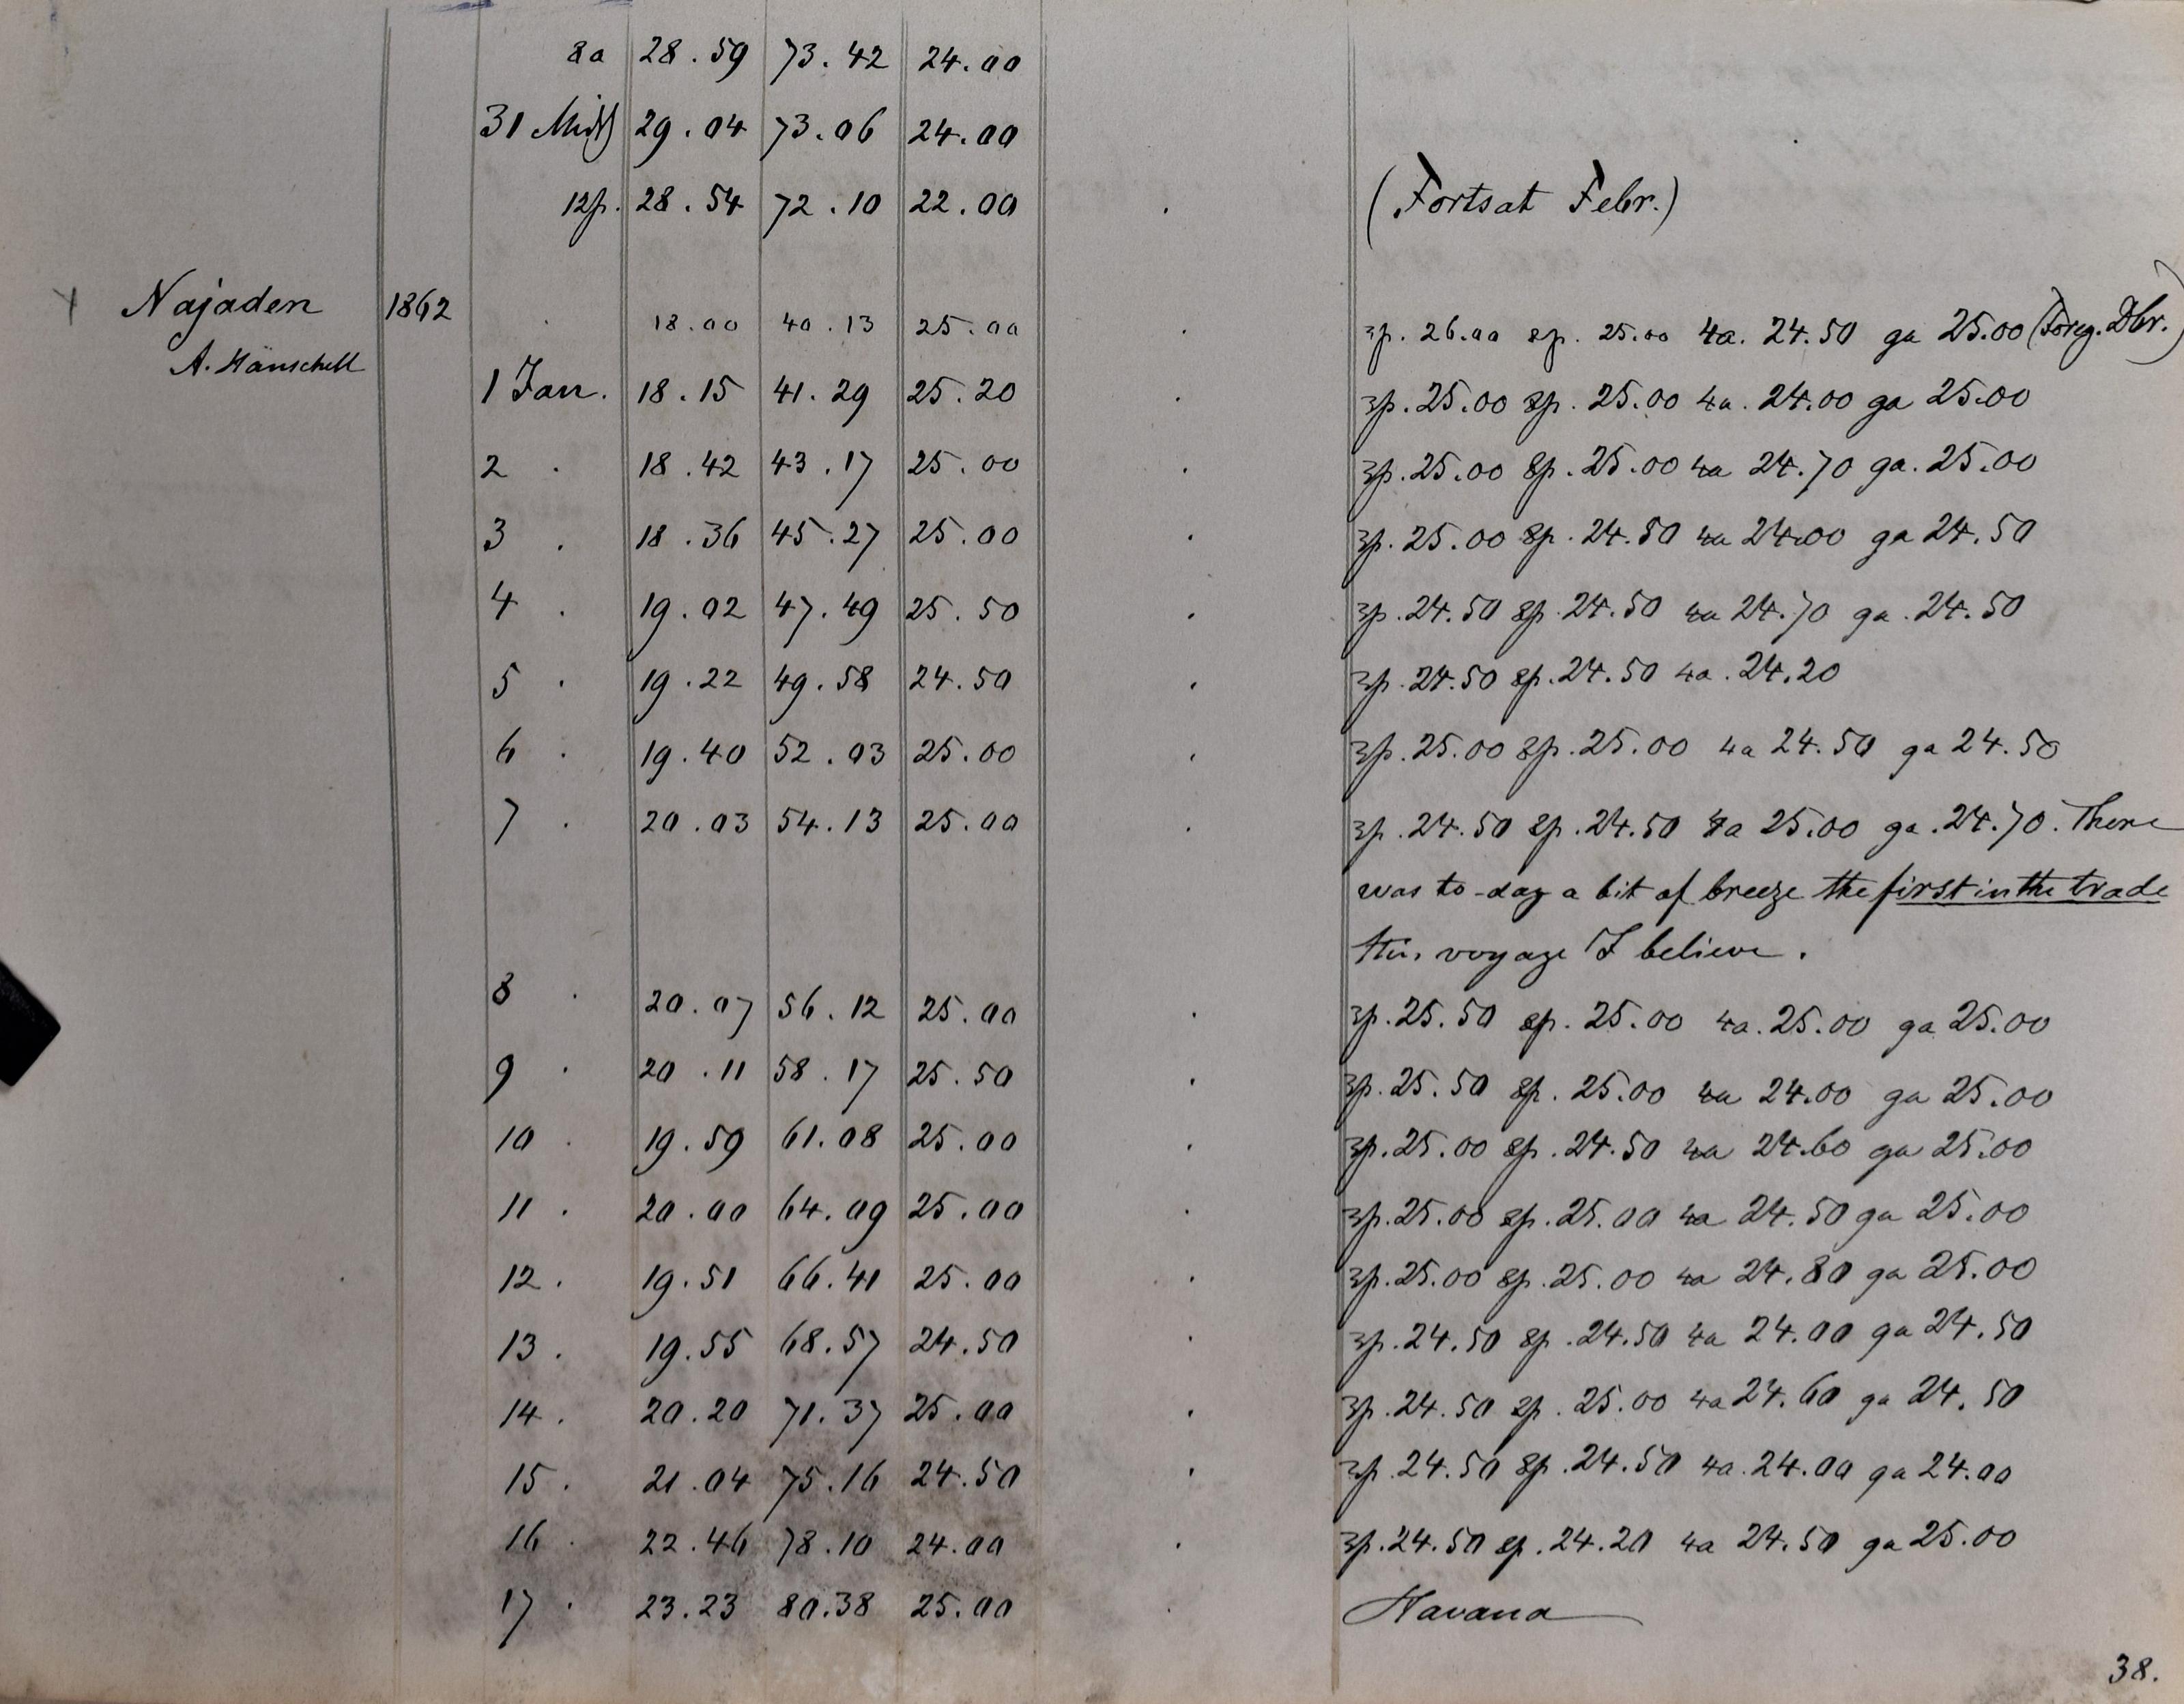 8a 28.59 73.42 24.00
31 Midd 29.04 73.06 24.00
12p. 28.54 72.10 22.00 . (Fortsat Febr.)
Najaden 1862 . 18.00 40.13 25.00 . 3p. 26.00 8p. 25.00 4a. 24.50 9a 25.00 (Foreg. Dbr.)
A. Hänschell
1 Jan. 18.15 41.29 25.20 . 3p. 25.00 8p. 25.00 4a. 24.00 9a 25.00
2 . 18.42 43.17 25.00 . 3p. 25.00 8p. 25.00 4a 24.70 9a. 25.00
3 . 18.36 45.27 25.00 . 3p. 25.00 8p. 24.50 4a 24.00 9a 24.50
4 . 19.02 47.49 25.50 . 3p. 24.50 8p. 24.50 4a 24.70 9a. 24.50
5 . 19.22 49.58 24.50 . 3p. 24.50 8p. 24.50 4a. 24.20
6 . 19.40 52.03 25.00 . 3p. 25.00 8p. 25.00 4a 24.50 9a 24.50
7 . 20.03 54.13 25.00 . 3p. 24.50 8p. 24.50 4a 25.00 9a. 24.70. There
was to-day a bit of breeze the first in the trade
this voyage I believe.
8 . 20.07 56.12 25.00 . 3p. 25.50 8p. 25.00 4a. 25.00 9a 25.00
9 . 20.11 58.17 25.50 . 3p. 25.50 8p. 25.00 4a 24.00 9a 25.00
10 . 19.59 61.08 25.00 . 3p. 25.00 8p. 24.50 4a 24.60 9a 25.00
11 . 20.00 64.09 25.00 . 3p. 25.00 8p. 25.00 4a 24.50 9a 25.00
12 . 19.51 66.41 25.00 . 3p. 25.00 8p. 25.00 4a 24.80 9a 25.00
13 . 19.55 68.57 24.50 . 3p. 24.50 8p. 24.50 4a 24.00 9a 24.50
14 . 20.20 71.37 25.00 . 3p. 24.50 8p. 25.00 4a 24.60 9a 24.50
15 . 21.04 75.16 24.50 . 3p. 24.50 8p. 24.50 4a. 24.00 9a 24.00
16 . 22.46 78.10 24.00 . 3p. 24.50 8p. 24.20 4a 24.50 9a 25.00
17 . 23.23 80.38 25.00 . Havana
38.